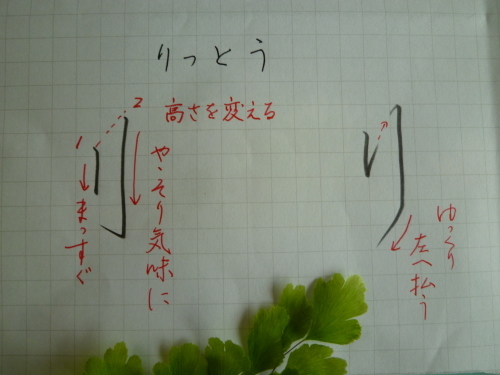 りっとう
1
2
高さを変える
まっすぐ
やゝそり気味に
刂
リ
ゆっくり
左へ払う